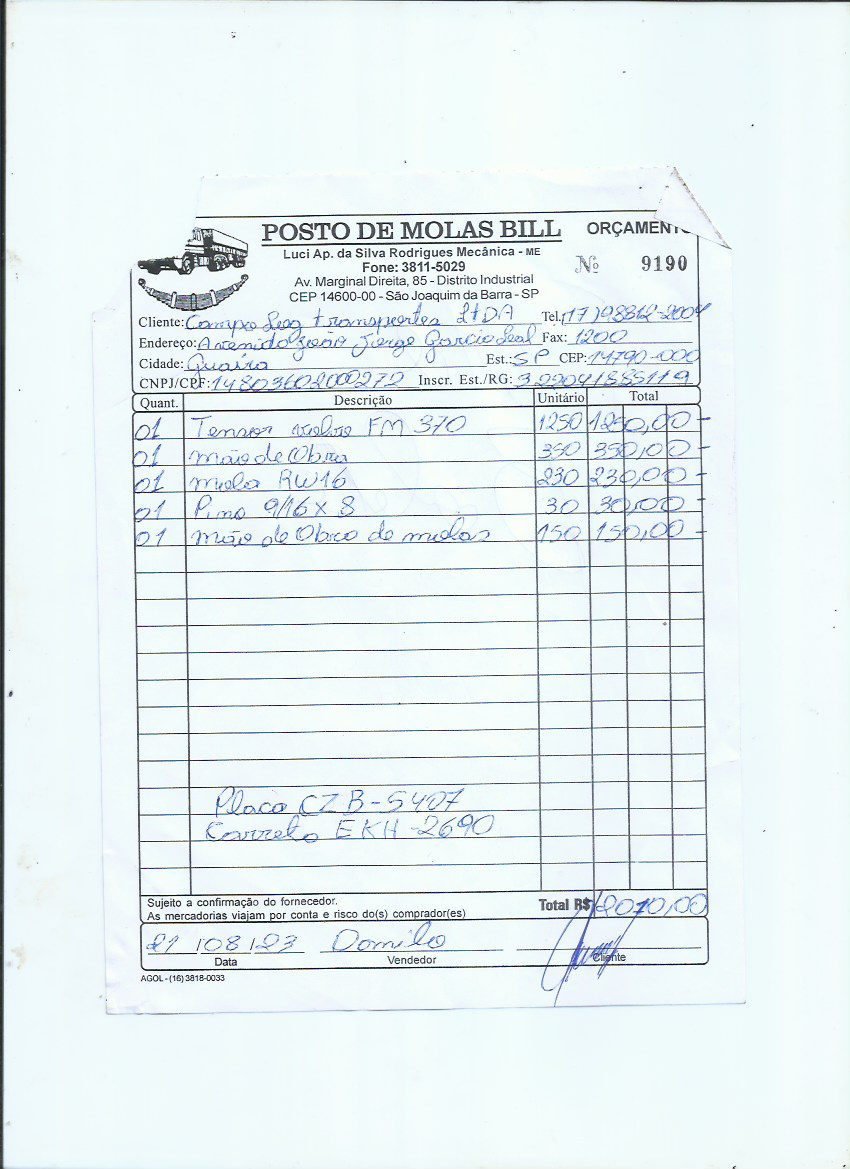 POSTO DE MOLAS BILL ORÇAMENTO
Luci Ap. da Silva Rodrigues Mecânica - ME
Fone: 3811-5029 Nº 9190
Av. Marginal Direita, 85 - Distrito Industrial
CEP 14600-00 - São Joaquim da Barra - SP
Cliente: Campo Leag transportes LtDA Tel.(17)98812-2004
Endereço: Avenida João Jorge Garcia Leal Fax: 1200
Cidade: Guaíra Est.: SP CEP: 14790-000
CNPJ/CPF: 14803602000272 Inscr. Est./RG: 322041885119
Quant. Descrição Unitário Total
01 Tensor volvo FM 370 1250 1250,00 -
01 mão de Obra 350 350,00 -
01 mola RW16 230 230,00 -
01 Pino 9/16 x 8 30 30,00 -
01 mão de Obra de molas 150 150,00 -
Placa CZB-5407
Carreta EKH-2690
Sujeito a confirmação do fornecedor.
As mercadorias viajam por conta e risco do(s) comprador(es) Total R$ 2010,00
21/08/23 Danilo
Data Vendedor Cliente
AGOL - (16) 3818-0033